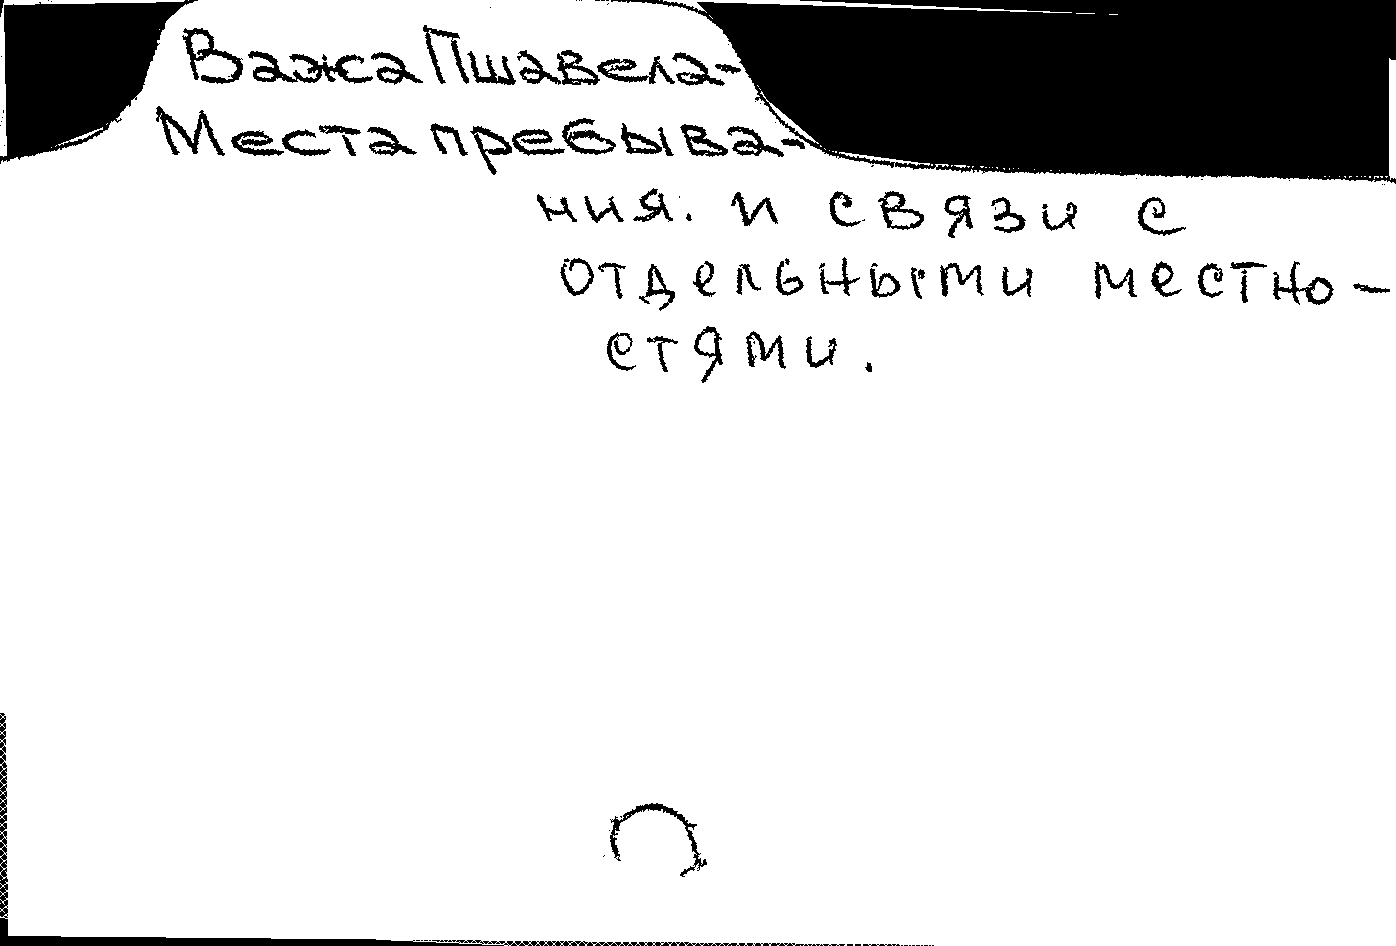 Важа Пшавела-
Места пребыва-
ния. и связи с
отдельными местно-
стями.